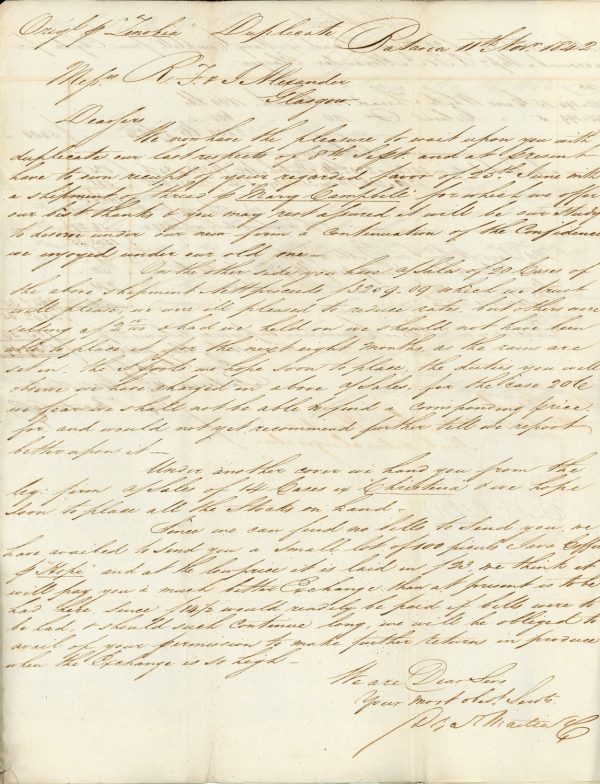 Orig'l p "Zenobia" Duplicate Batavia 11th Novr 1842
Messrs R. F. & J Alexander
Glasgow
Dear Sirs
We now have the pleasure to wait upon you with
duplicate our last respects of 8th Sept. and at present
have to own receipt of your regarded favor of 25th June with
a shipment of thread p "Mary Campbell" for which we offer
our best thanks & you may rest assured it will be our study
to deserve under our new firm a continuation of the Confidence
we enjoyed under our old one—
On the other side you have a/Sales of 20 Cases of
the above shipment Nett proceeds f3209.09 which we trust
will please, we were ill pleased to reduce rates but others were
selling @ & had we held on we should not have been
able to place it for the next eight months as the rains are
set in. The Spools we hope soon to place, the duties you will
observe we have charged in above a/Sales, for the case 206
we fear we shall not be able to find a corresponding price
for and would not yet recommend further till we report
better upon it—
Under another cover we hand you from the
firm a/Sales of 14 Cases ex "Christina" & we hope
soon to place all the Stocks on hand—
Since we can find no bills to send you, we
have availed to send you a small lot of 100 piculs Java Coffee
p "Hope" and at the low price it is laid in f23 we think it
will pay you a much better Exchange than at present is to be
had here, since would readily be paid if bills were to
be had, & should such continue long, we will be obliged to
avail of your permission to make further returns in produce
when the Exchange is so high—
We are Dear Sirs
Your most obedt. Servts
Maitland & Co